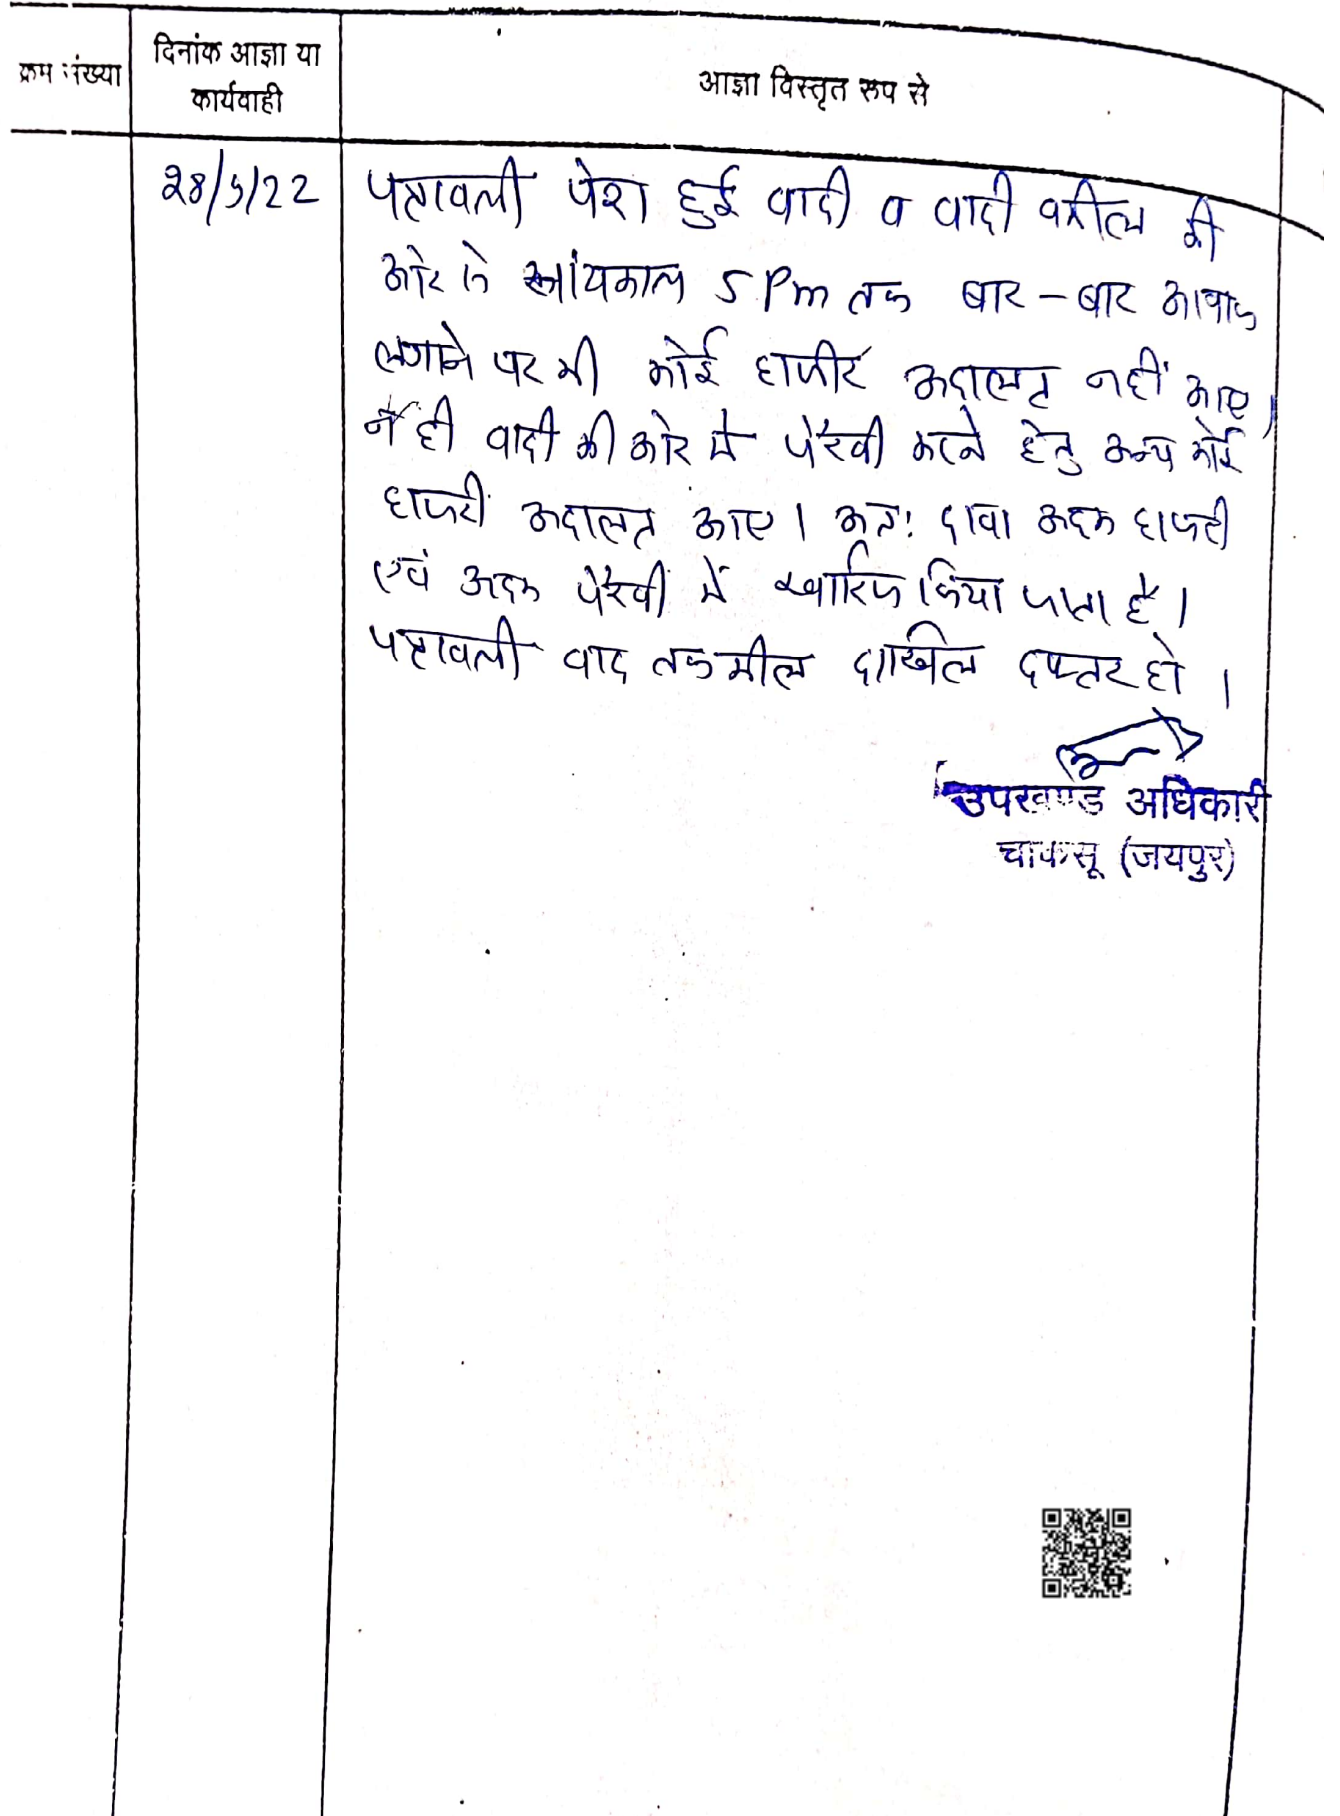 क्रम संख्या
दिनांक आज्ञा या
कार्यवाही
आज्ञा विस्तृत रूप से
28/5/22
पत्रावली पेश हुई वादी व वादी वकील की
ओर से सांयकाल 5 Pm तक बार-बार आवाज
लगाने पर भी कोई हाजीर अदालत नहीं आए।
न ही वादी की ओर से पैरवी करने हेतु अन्य कोई
हाजरी अदालत आए। अतः दावा अदम हाजरी
एवं अदम पैरवी में खारिज किया जाता है।
पत्रावली वाद तकमील दाखिल दफ्तर हो।
उपखण्ड अधिकारी
चाकसू (जयपुर)